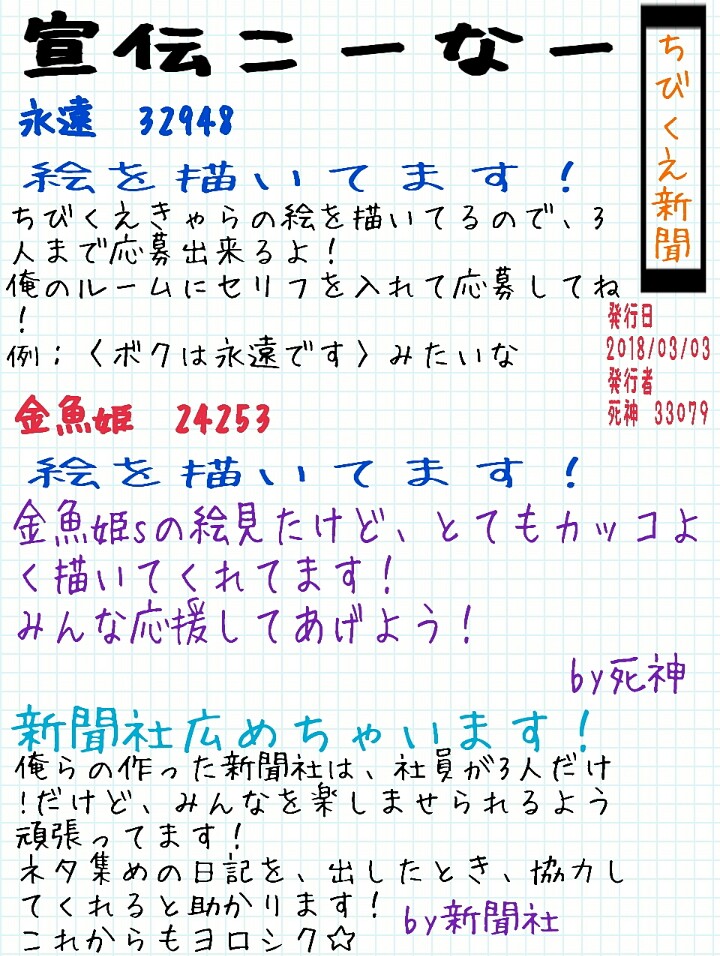 宣伝こーなー
ちびくえ新聞
発行日
2018/03/03
発行者
死神 33079
永遠 32948
絵を描いてます！
ちびくえきゃらの絵を描いてるので、3
人まで応募出来るよ！
俺のルームにセリフを入れて応募してね
！
例：〈ボクは永遠です〉みたいな
金魚姫 24253
絵を描いてます！
金魚姫sの絵見たけど、とてもカッコよ
く描いてくれてます！
みんな応援してあげよう！
by死神
新聞社広めちゃいます！
俺らの作った新聞社は、社員が3人だけ
！だけど、みんなを楽しませられるよう
頑張ってます！
ネタ集めの日記を、出したとき、協力し
てくれると助かります！
これからもヨロシク☆
by新聞社